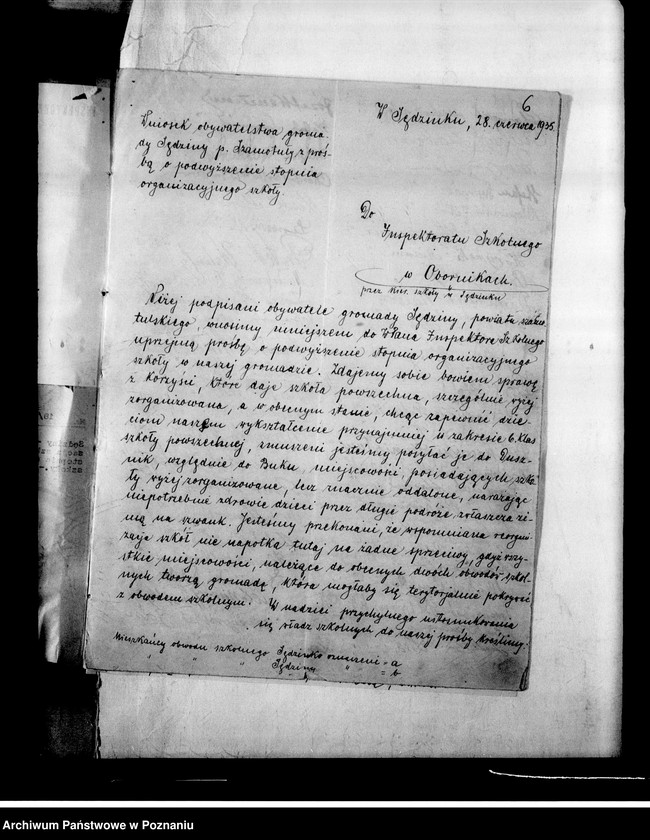 6
W Sędzinku, 28. czerwca 1935
Wniosek obywatelstwa groma-
dy Sędziny p. Szamotuły z proś-
bą o podwyższenie stopnia
organizacyjnego szkoły.
Do
Inspektoratu Szkolnego
w Obornikach.
przez kier. szkoły w Sędzinku
Niżej podpisani obywatele gromady Sędziny, powiatu szamo-
tulskiego, wnosimy niniejszem do WPana Inspektora Szkolnego
uprzejmą prośbę o podwyższenie stopnia organizacyjnego
szkoły w naszej gromadzie. Zdajemy sobie bowiem sprawę
z korzyści, które daje szkoła powszechna, szczególnie wyżej
zorganizowana, a w obecnym stanie, chcąc zapewnić dzie-
ciom naszym wykształcenie przynajmniej w zakresie 6. klas
szkoły powszechnej, zmuszeni jesteśmy posyłać je do Dusz-
nik, względnie do Buku, miejscowości posiadających szko-
ły wyżej zorganizowane, lecz znacznie oddalone, narażając
niepotrzebnie zdrowie dzieci przez długie podróże zwłaszcza zi-
mą na szwank. Jesteśmy przekonani, że wspomniana reorgani-
zacja szkół nie napotka tutaj na żadne sprzeciwy, gdyż wszy-
stkie miejscowości, należące do obecnych dwóch obwodów szkol-
nych tworzą gromadę, która mogłaby się terytorjalnie pokrywać
z obwodem szkolnym. W nadziei przychylnego ustosunkowania
się władz szkolnych do naszej prośby kreślimy:
Mieszkańcy obwodu szkolnego Sędzinko oznaczeni = a
" " " Sędziny " = b
Archiwum Państwowe w Poznaniu